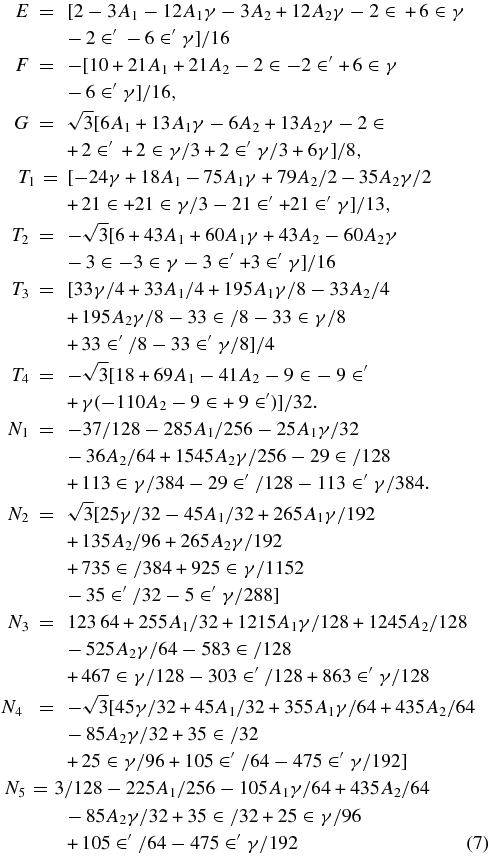 E = [2 − 3A₁ − 12A₁γ − 3A₂ + 12A₂γ − 2 ∈ +6 ∈ γ
− 2 ∈′ − 6 ∈′ γ]/16
F = −[10 + 21A₁ + 21A₂ − 2 ∈ −2 ∈′ +6 ∈ γ
− 6 ∈′ γ]/16,
G = √3[6A₁ + 13A₁γ − 6A₂ + 13A₂γ − 2 ∈
+ 2 ∈′ +2 ∈ γ/3 + 2 ∈′ γ/3 + 6γ]/8,
T₁ = [−24γ + 18A₁ − 75A₁γ + 79A₂/2 − 35A₂γ/2
+ 21 ∈ +21 ∈ γ/3 − 21 ∈′ +21 ∈′ γ]/13,
T₂ = −√3[6 + 43A₁ + 60A₁γ + 43A₂ − 60A₂γ
− 3 ∈ −3 ∈ γ − 3 ∈′ +3 ∈′ γ]/16
T₃ = [33γ/4 + 33A₁/4 + 195A₁γ/8 − 33A₂/4
+ 195A₂γ/8 − 33 ∈ /8 − 33 ∈ γ/8
+ 33 ∈′ /8 − 33 ∈′ γ/8]/4
T₄ = −√3[18 + 69A₁ − 41A₂ − 9 ∈ − 9 ∈′
+ γ(−110A₂ − 9 ∈ + 9 ∈′)]/32.
N₁ = −37/128 − 285A₁/256 − 25A₁γ/32
− 36A₂/64 + 1545A₂γ/256 − 29 ∈ /128
+ 113 ∈ γ/384 − 29 ∈′ /128 − 113 ∈′ γ/384.
N₂ = √3[25γ/32 − 45A₁/32 + 265A₁γ/192
+ 135A₂/96 + 265A₂γ/192
+ 735 ∈ /384 + 925 ∈ γ/1152
− 35 ∈′ /32 − 5 ∈′ γ/288]
N₃ = 123 64 + 255A₁/32 + 1215A₁γ/128 + 1245A₂/128
− 525A₂γ/64 − 583 ∈ /128
+ 467 ∈ γ/128 − 303 ∈′ /128 + 863 ∈′ γ/128
N₄ = −√3[45γ/32 + 45A₁/32 + 355A₁γ/64 + 435A₂/64
− 85A₂γ/32 + 35 ∈ /32
+ 25 ∈ γ/96 + 105 ∈′ /64 − 475 ∈′ γ/192]
N₅ = 3/128 − 225A₁/256 − 105A₁γ/64 + 435A₂/64
− 85A₂γ/32 + 35 ∈ /32 + 25 ∈ γ/96
+ 105 ∈′ /64 − 475 ∈′ γ/192 (7)